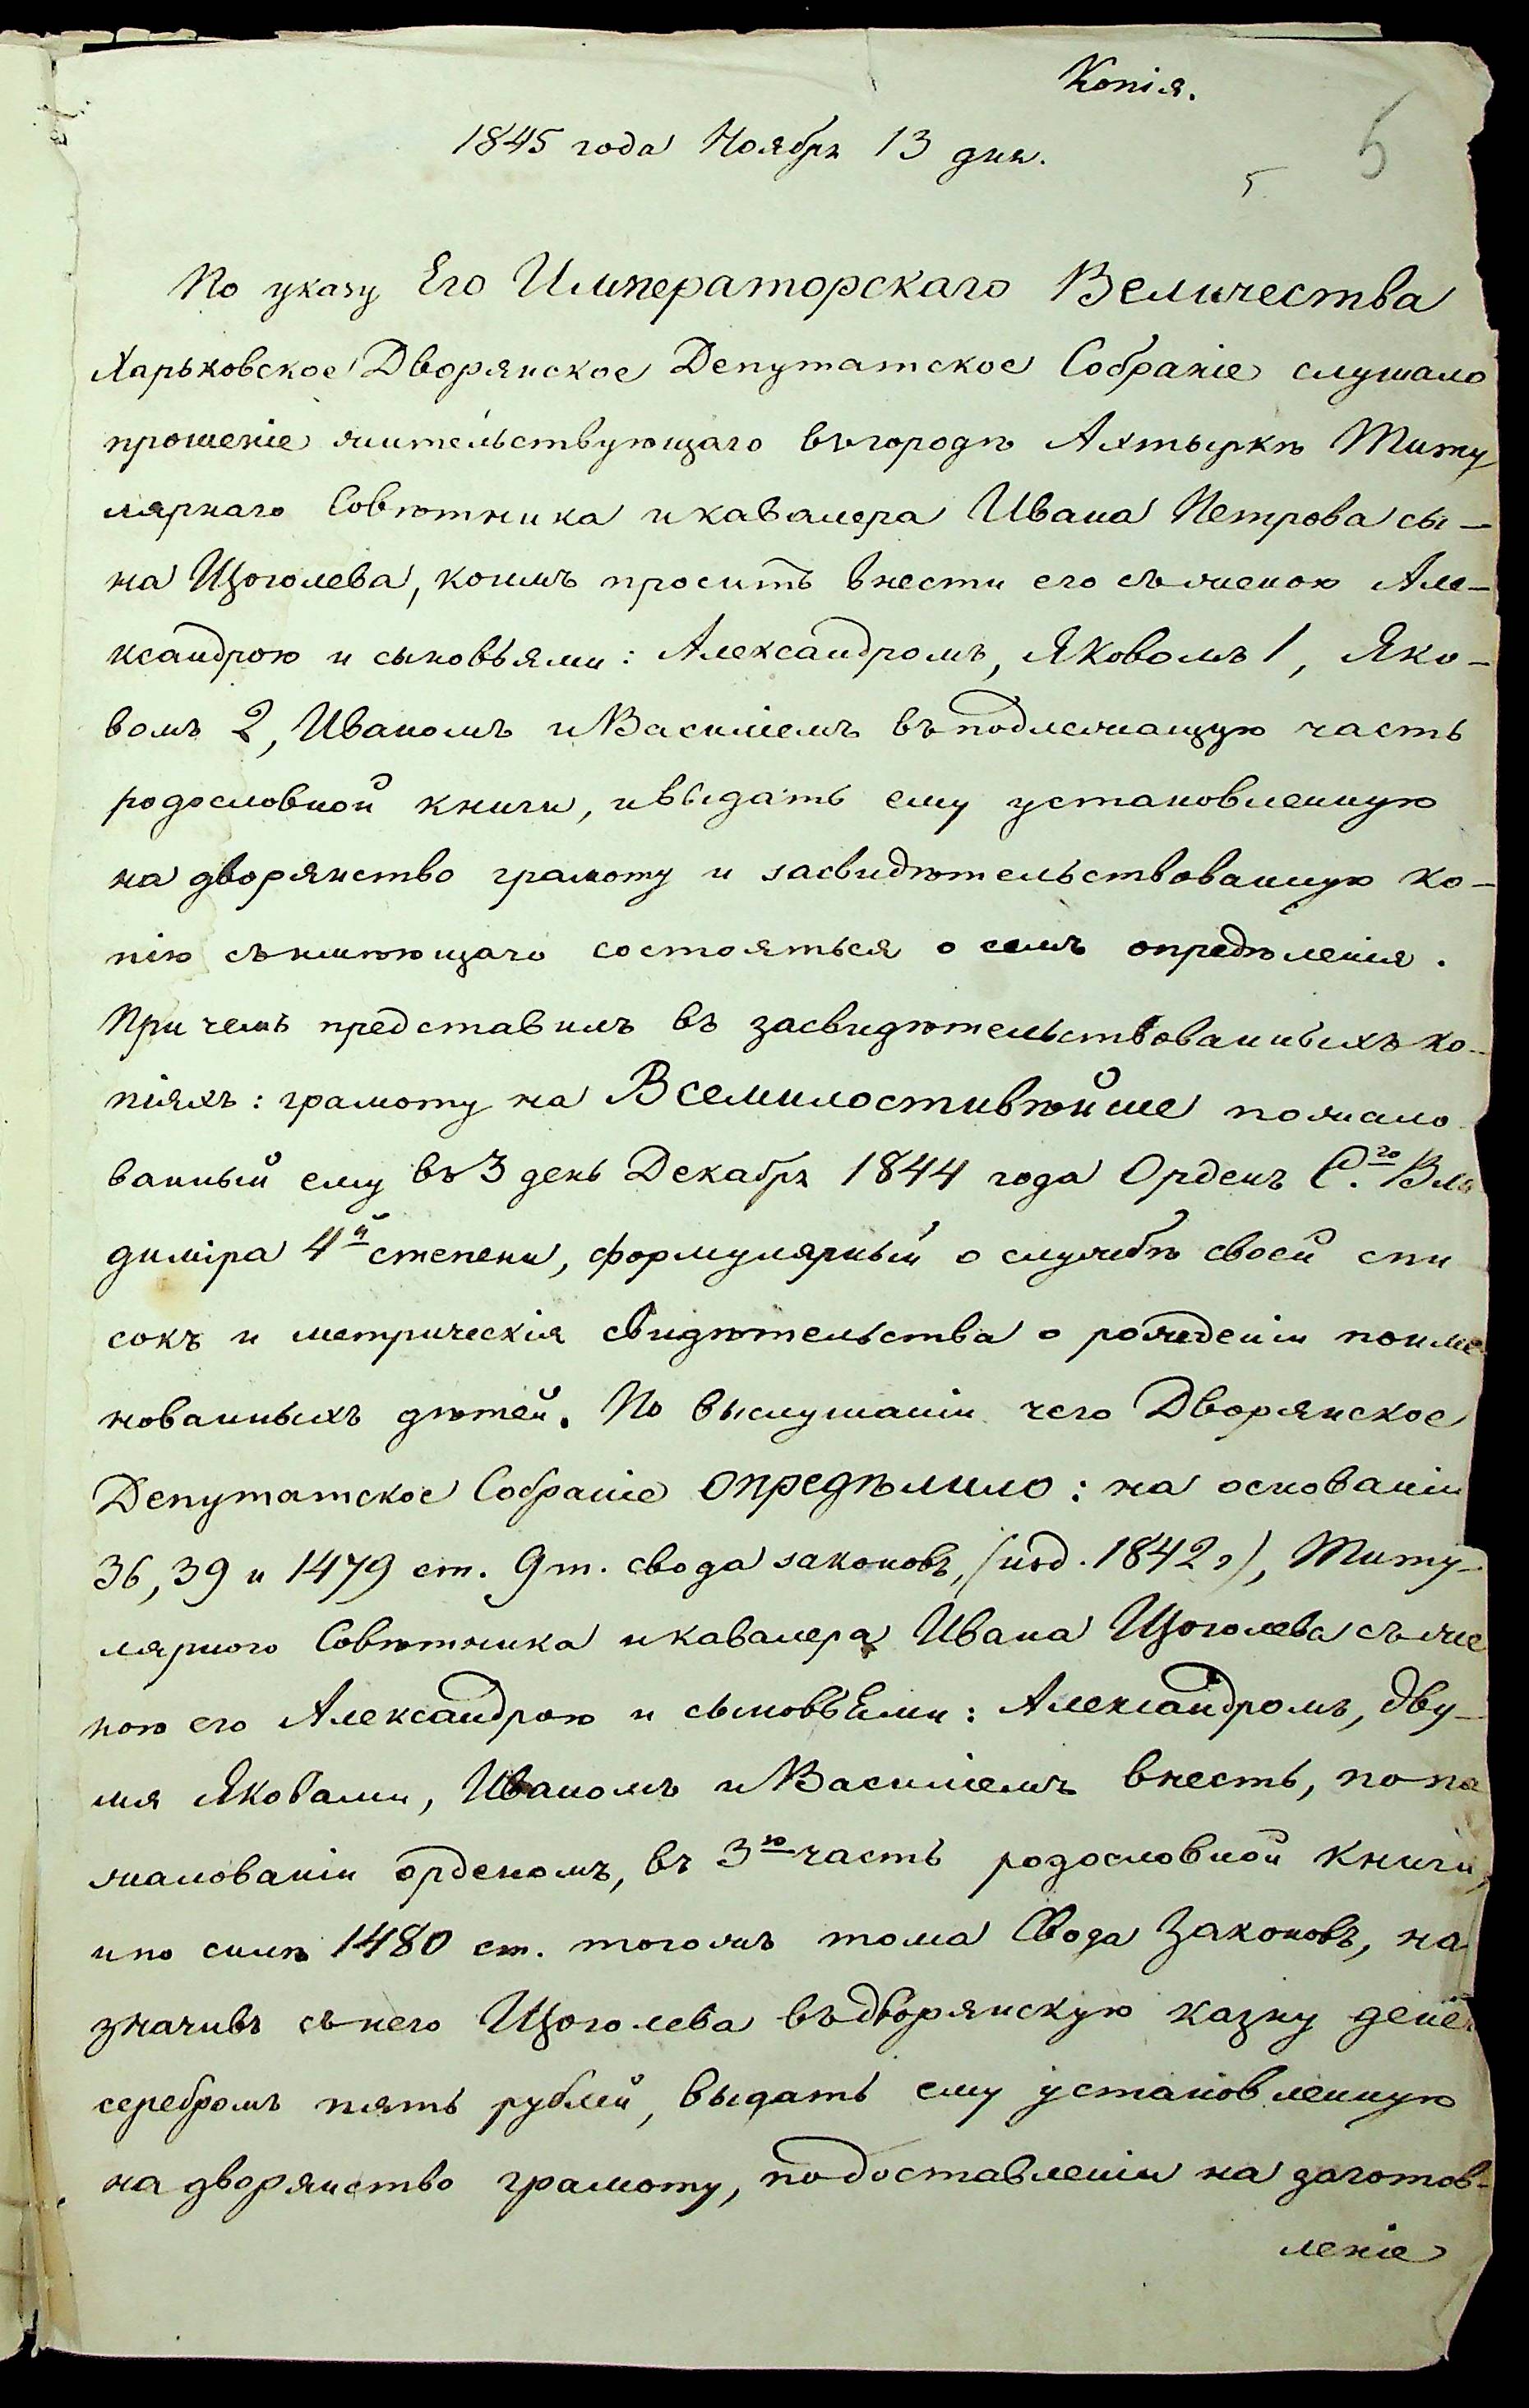 Копія.
5
1845 года Ноября 13 дня.
5
По указу Его Императорскаго Величества
Харьковское Дворянское Депутатское Собраніе слушало
прошеніе жительствующаго въ городѣ Ахтыркѣ Титу
лярнаго Совѣтника и кавалера Ивана Петрова сы-
на Щоголева, коимъ проситъ внести его съ женою Але-
ксандрою и сыновьями: Александромъ, Яковомъ 1, Яко-
вомъ 2, Иваномъ и Василіемъ въ подлежащую часть
родословной книги, и выдать ему установленную
на дворянство грамоту и засвидѣтельствованную ко-
пію съ имѣющаго состояться о семъ опредѣленія.
При чемъ представилъ въ засвидѣтельствованныхъ ко-
піяхъ: грамоту на Всемилостивѣйше пожало
ванный ему въ 3 день Декабря 1844 года Орденъ С.го Вла
диміра 4й степени, формулярный о службѣ своей спи
сокъ и метрическія свидѣтельства о рожденіи поиме
нованныхъ дѣтей. По выслушаніи чего Дворянское
Депутатское Собраніе опредѣлило: на основаніи
36, 39 и 1479 ст. 9 т. свода законовъ, (изд. 1842 г), Титу-
лярного Совѣтника и кавалера Ивана Щоголева съ же
ною его Александрою и сыновьями: Александромъ, дву-
мя Яковами, Иваномъ и Василіемъ внесть, по по
жалованіи орденомъ, въ 3ю часть родословной книги,
и по силѣ 1480 ст. того жъ тома Свода Законовъ, на
значивъ съ него Щоголева въ дворянскую казну денег
серебромъ пять рублей, выдать ему установленную
на дворянство грамоту, по доставленіи на заготов-
леніе